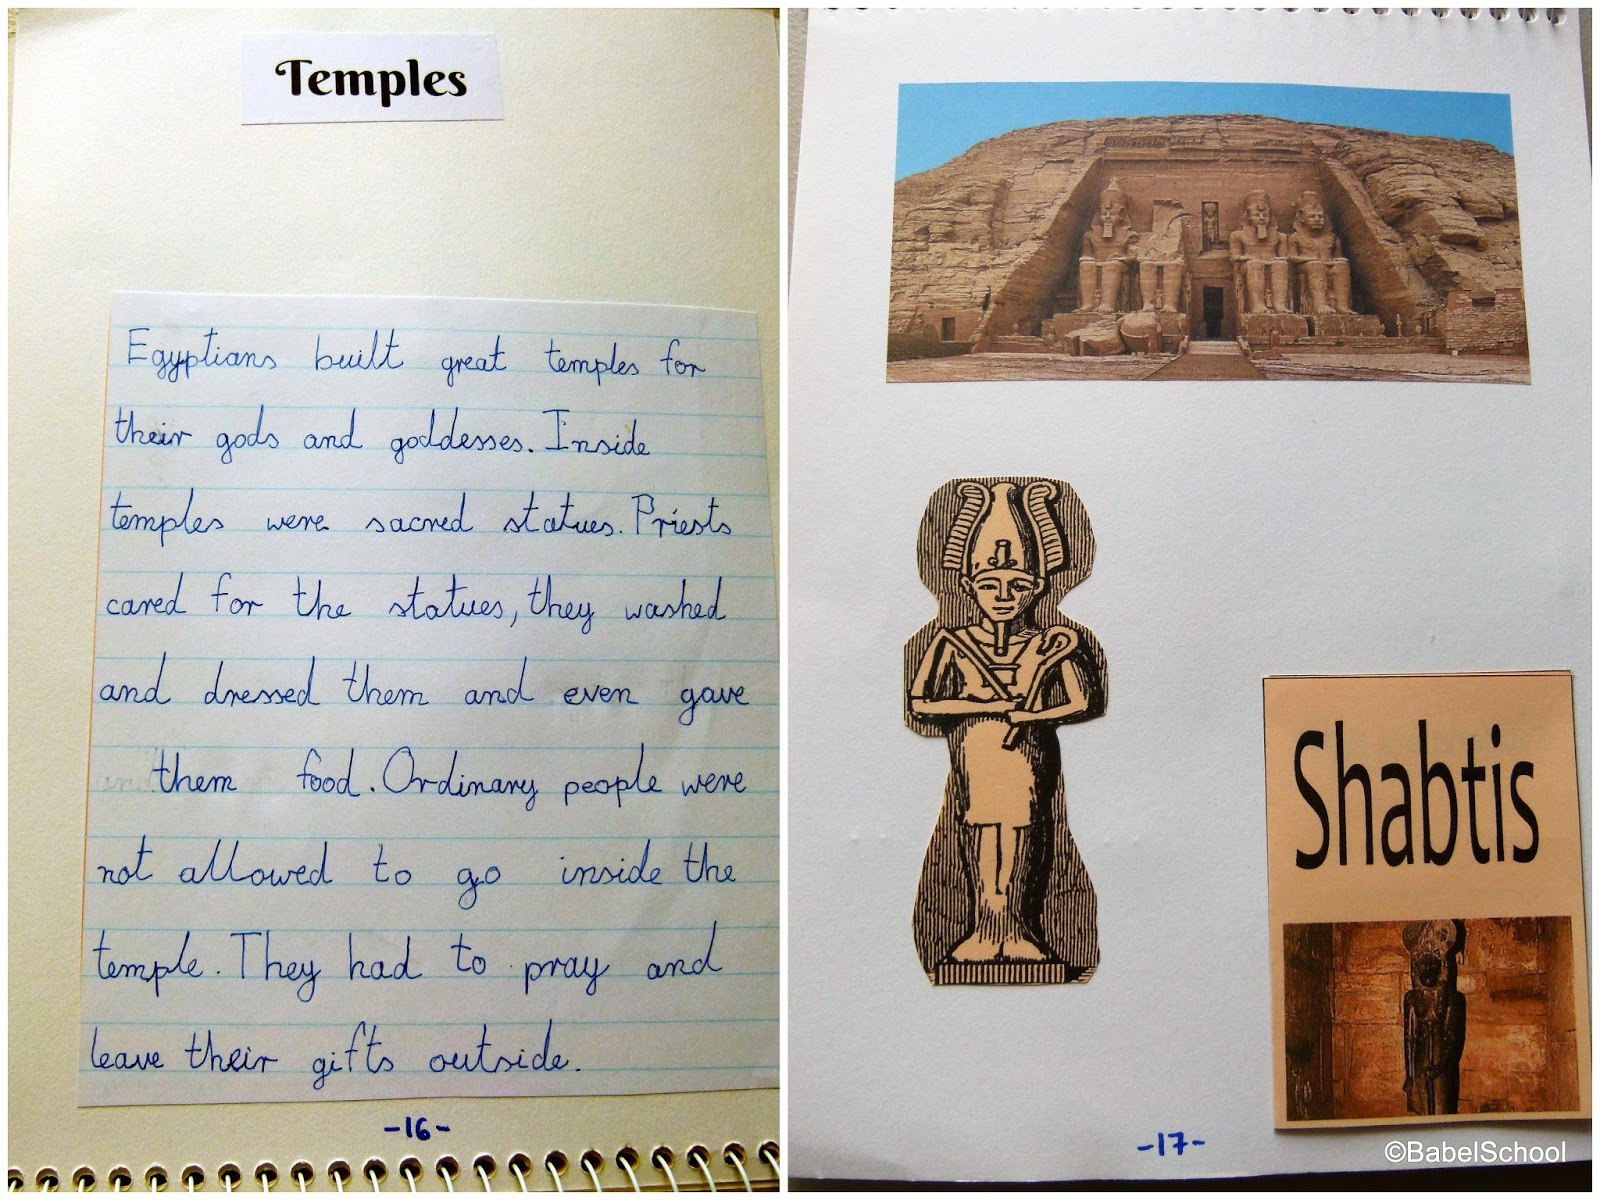 Temples
Egyptians built great temples for
their gods and goddesses. Inside
temples were sacred statues. Priests
cared for the statues, they washed
and dressed them and even gave
them food. Ordinary people were
not allowed to go inside the
temple. They had to pray and
leave their gifts outside.
-16-
Shabtis
-17-
©BabelSchool